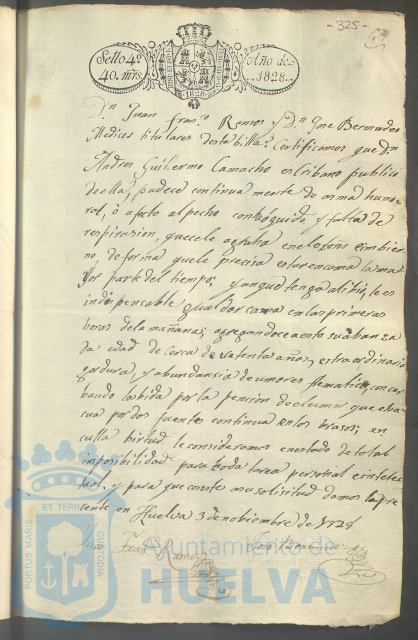 -325-
Sello 4º
40. mrs.
Año de
1828.
1828
Dn. Juan Franco. Ramos y Dn. Jose Bermudez
Medicos titulares desta billa; Certificamos que Dn.
Andres Guillermo Camacho escribano publico
de ella, padece continua mente de asma humo
ral, ó afecto al pecho con fatiga y falta de
respirasion, que se le agraba en el otoño e imbier
no, de forma que le precisa estar en cama la ma
yor parte del tiempo; y aunque tenga alibio, le es
indispensable guardar cama en las primeras
horas de la mañana; agregandoce a esto su abanza
da edad de cerca de setenta años, estraordinaria
gordura, y abundansia de umores flematicos, con
bando la bida por la pencion de el umor que eba
cua por dos fuentes continua en los brasos; en
culla birtud le consideramos en estado de total
imposibilidad para toda tarea personal e intelec
tual, y para que conste a su solisitud damos la pre
sente en Huelva 3 de nobiembre de 1828
Juan Franco. Ramos
Jose Bermudez
Ayuntamiento de
HUELVA
PORTUS MARIS
ET TERRAE
CUSTODIA